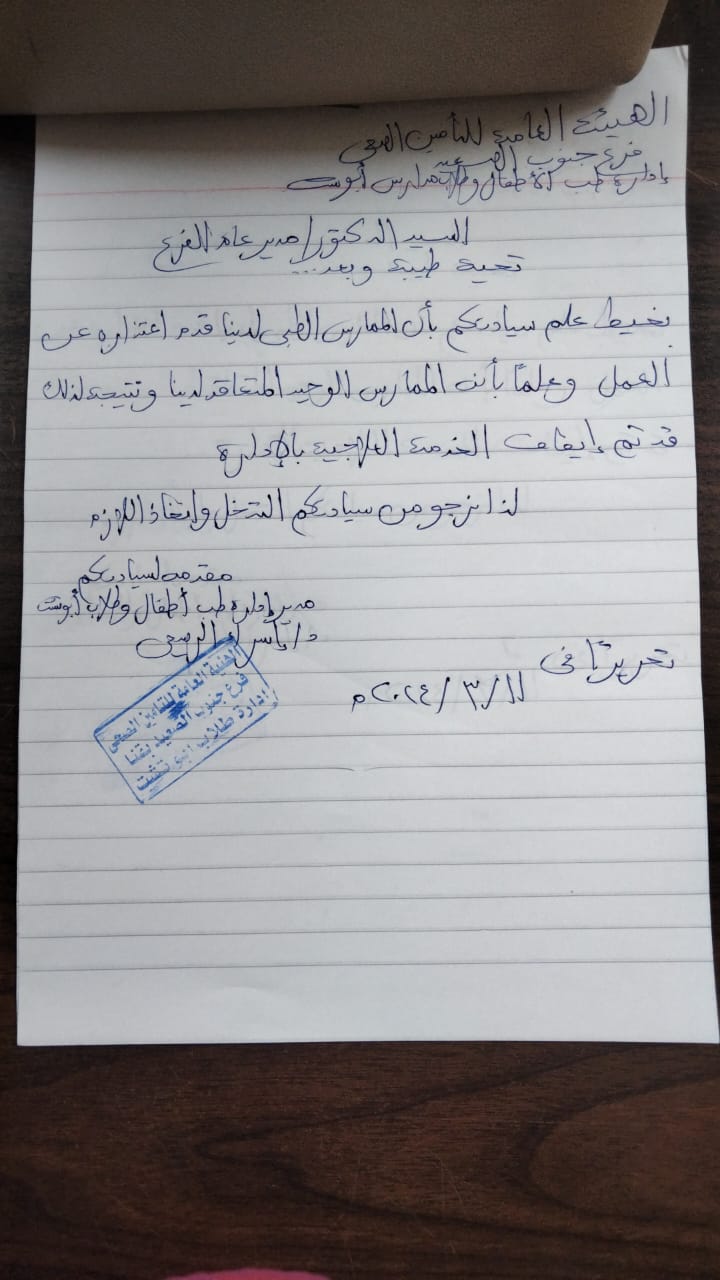 الهيئة العامة للتأمين الصحى
فرع جنوب الصعيد
إدارة طب الأطفال وطلاب مدارس أبوتشت
السيد الدكتور/ مدير عام الفرع
تحية طيبة وبعد...
نحيط علم سيادتكم بأن الممارس الطبى لدينا قدم اعتذاره عن
العمل وعلمًا بأنه الممارس الوحيد المتعاقد لدينا ونتيجة لذلك
قد تم إيقاف الخدمة العلاجية بالإدارة
لذا نرجو من سيادتكم التدخل واتخاذ اللازم
مقدمه لسيادتكم
مدير إدارة طب أطفال وطلاب أبوتشت
د/ إسراء
تحريرًا فى
١١/ ٣/ ٢٠٢٤م
الهيئة العامة للتأمين الصحى
فرع جنوب الصعيد بقنا
إدارة طلاب ابو تشت